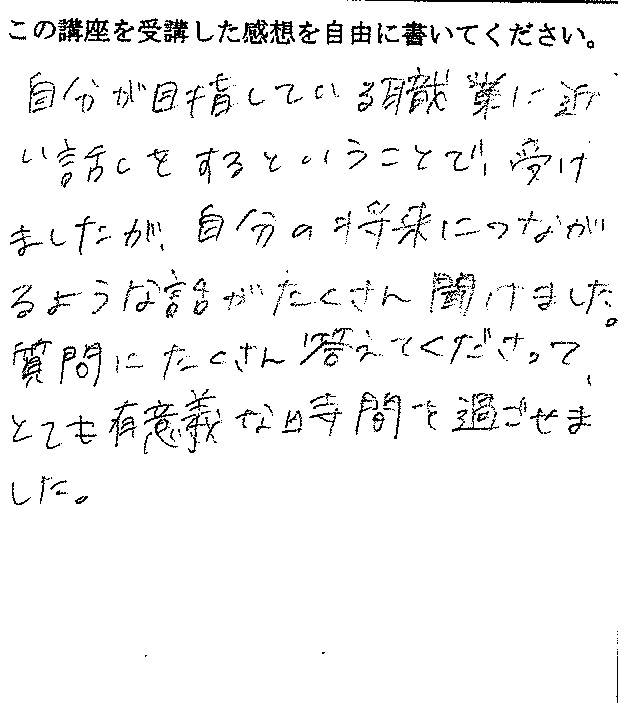 この講座を受講した感想を自由に書いてください。
自分が目指している職業に近
い話しをするということで、受け
ましたが、自分の将来につなが
るような話がたくさん聞けました。
質問にたくさん答えてくださって、
とても有意義な時間を過ごせま
した。